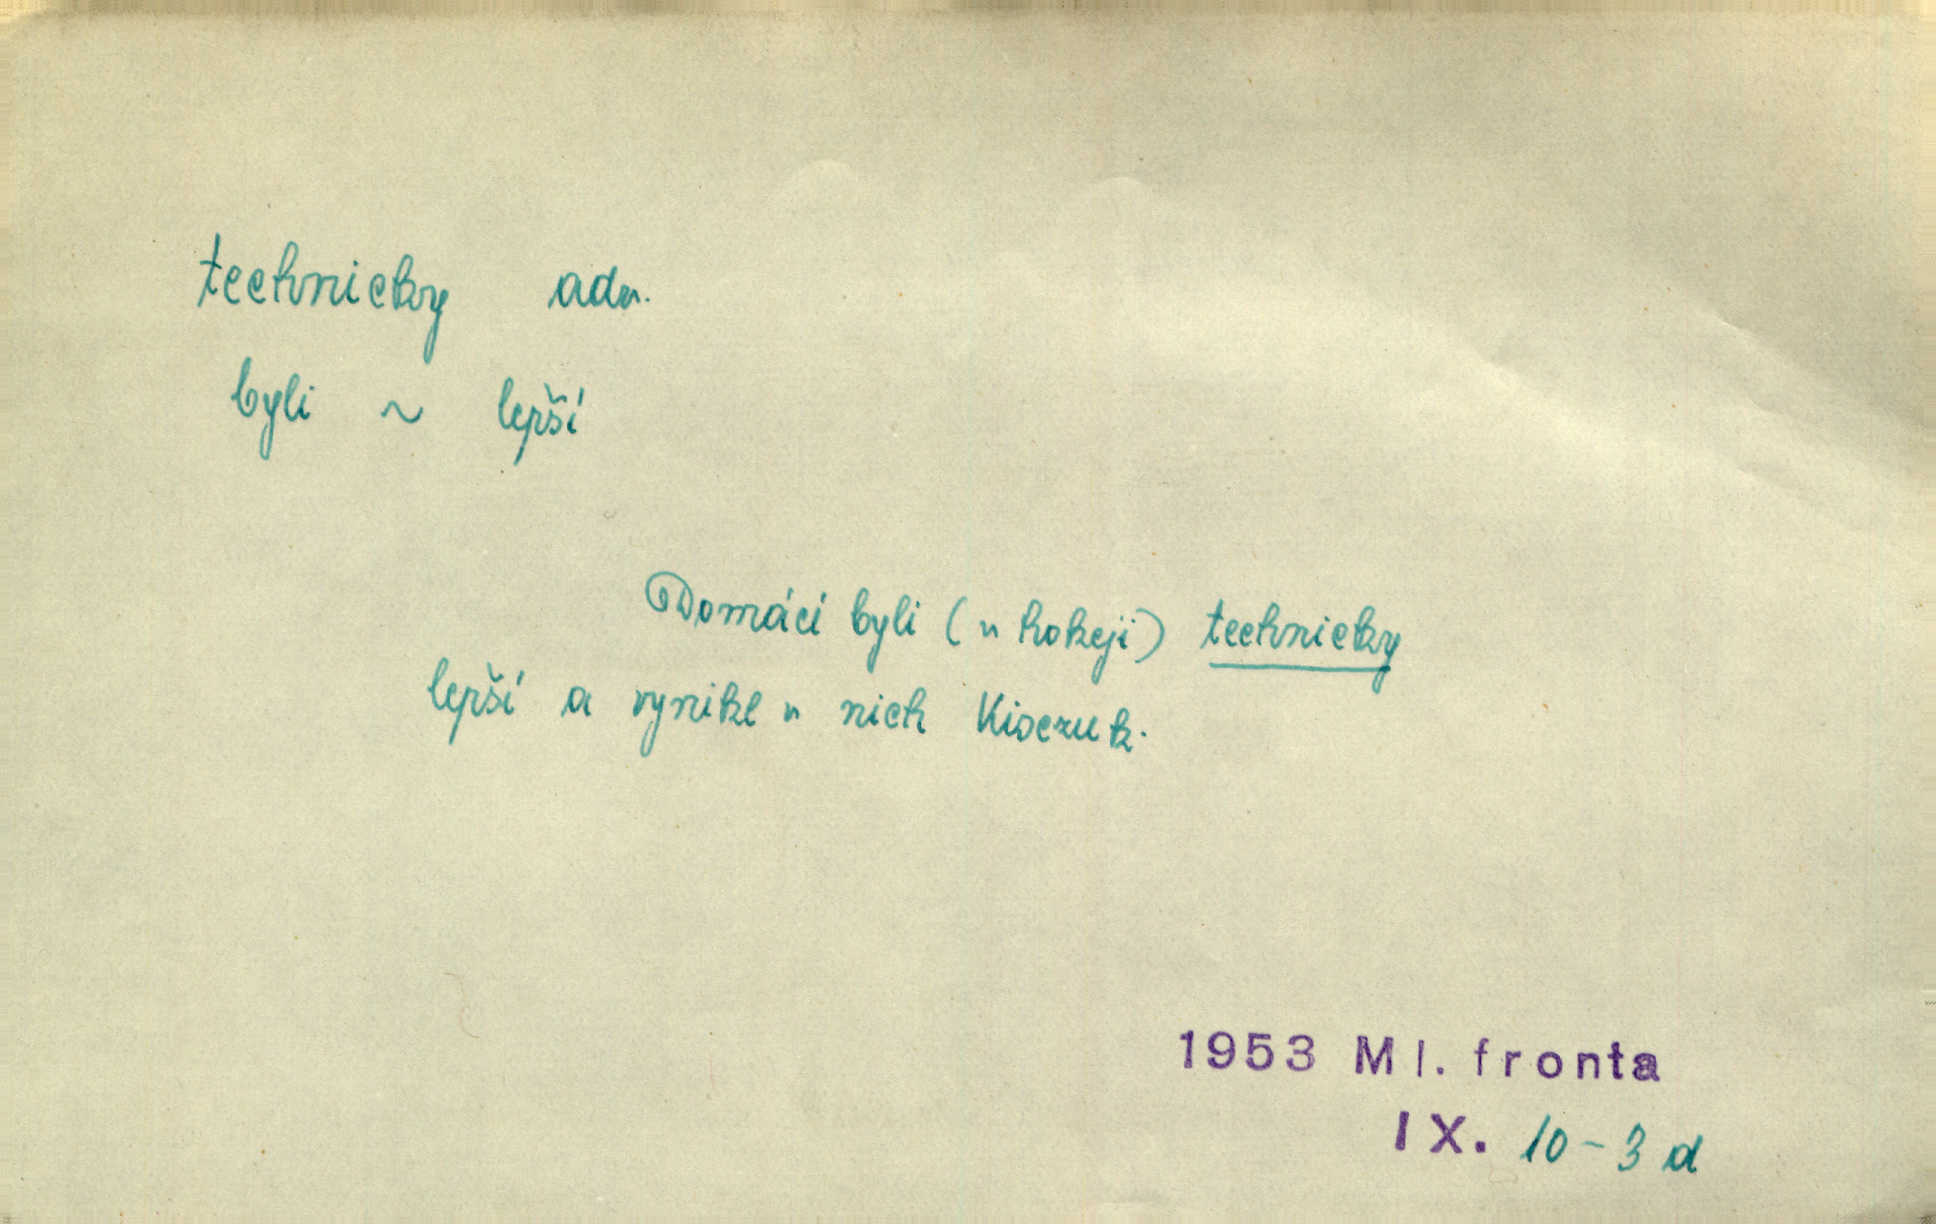 technicky adv.
byli ~ lepší
Domácí byli (v hokeji) technicky
lepší a vynikl v nich
1953 Ml. fronta
IX. 10-3 d